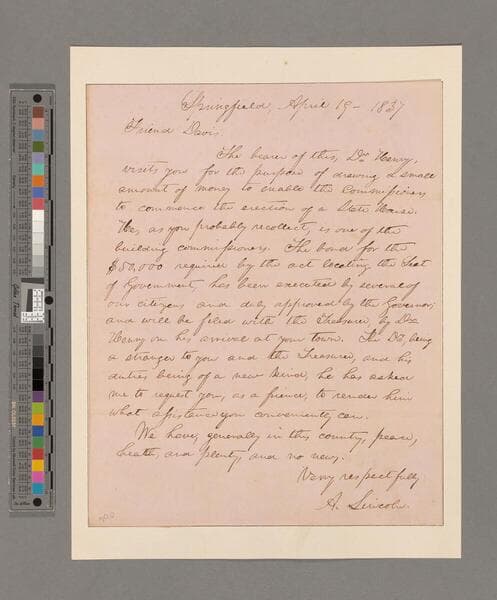 Springfield, April 19 - 1837
Friend Davis,
The bearer of this, Dr Henry,
visits you for the purpose of drawing a small
amount of money to enable the Commissioners
to commence the erection of a State House.
He, as you probably recollect, is one of the
building commissioners. The bond for the
$50,000 required by the act locating the Seat
of Government, has been executed by several of
our citizens and duly approved by the Governor;
and will be filed with the Treasurer, by Dr
Henry on his arrival at your town. The Dr, being
a stranger to you and the Treasurer, and his
duties being of a new kind, he has asked
me to request you, as a friend, to render him
what assistance you conveniently can.
We have, generally in this county, peace,
health, and plenty, and no news.
Very respectfully
A. Lincoln.